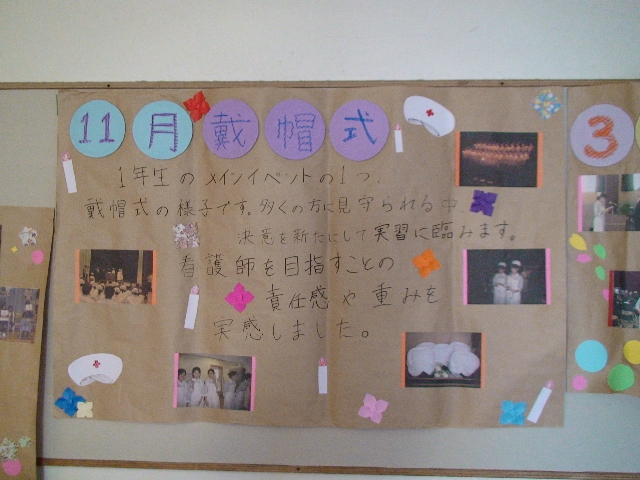 11月戴帽式
3
1年生のメインイベントの1つ、
戴帽式の様子です。多くの方に見守られる中
決意を新たにして実習に臨みます。
看護師を目指すことの
責任感や重みを
実感しました。